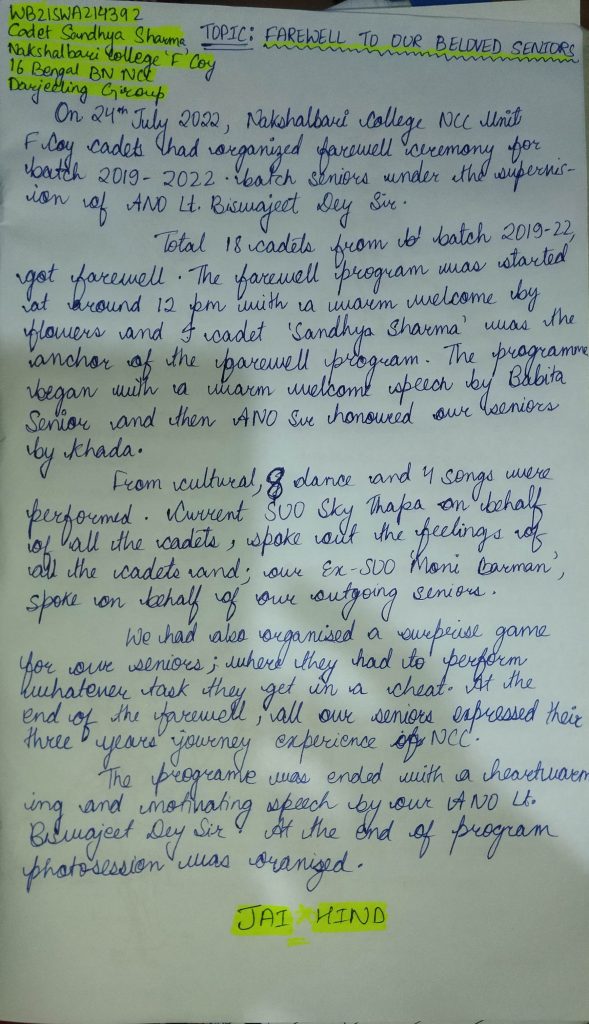 WB21SWA214392
Cadet Sandhya Sharma,
Nakshalbari College 'F' Coy
16 Bengal BN NCC
Darjeeling Group
TOPIC: FAREWELL TO OUR BELOVED SENIORS
On 24th July 2022, Nakshalbari College NCC Unit
F Coy cadets had organized farewell ceremony for
batch 2019-2022 batch seniors under the supervis-
ion of ANO Lt. Biswajeet Dey Sir.
Total 18 cadets from batch 2019-22,
got farewell. The farewell program was started
at around 12 pm with a warm welcome by
flowers and I cadet 'Sandhya Sharma' was the
anchor of the farewell program. The programme
began with a warm welcome speech by Babita
Senior and then ANO Sir honoured our seniors
by khada.
From cultural, 8 dance and 4 songs were
performed. Current SUO Sky Thapa on behalf
of all the cadets, spoke out the feelings of
all the cadets and; our Ex-SUO 'Moni Barman',
spoke on behalf of our outgoing seniors.
We had also organised a surprise game
for our seniors; where they had to perform
whatever task they get in a cheat. At the
end of the farewell, all our seniors expressed their
three years journey experience of NCC.
The programe was ended with a heartwarm
ing and motivating speech by our ANO Lt.
Biswajeet Dey Sir. At the end of program
photosession was oranized.
JAI HIND